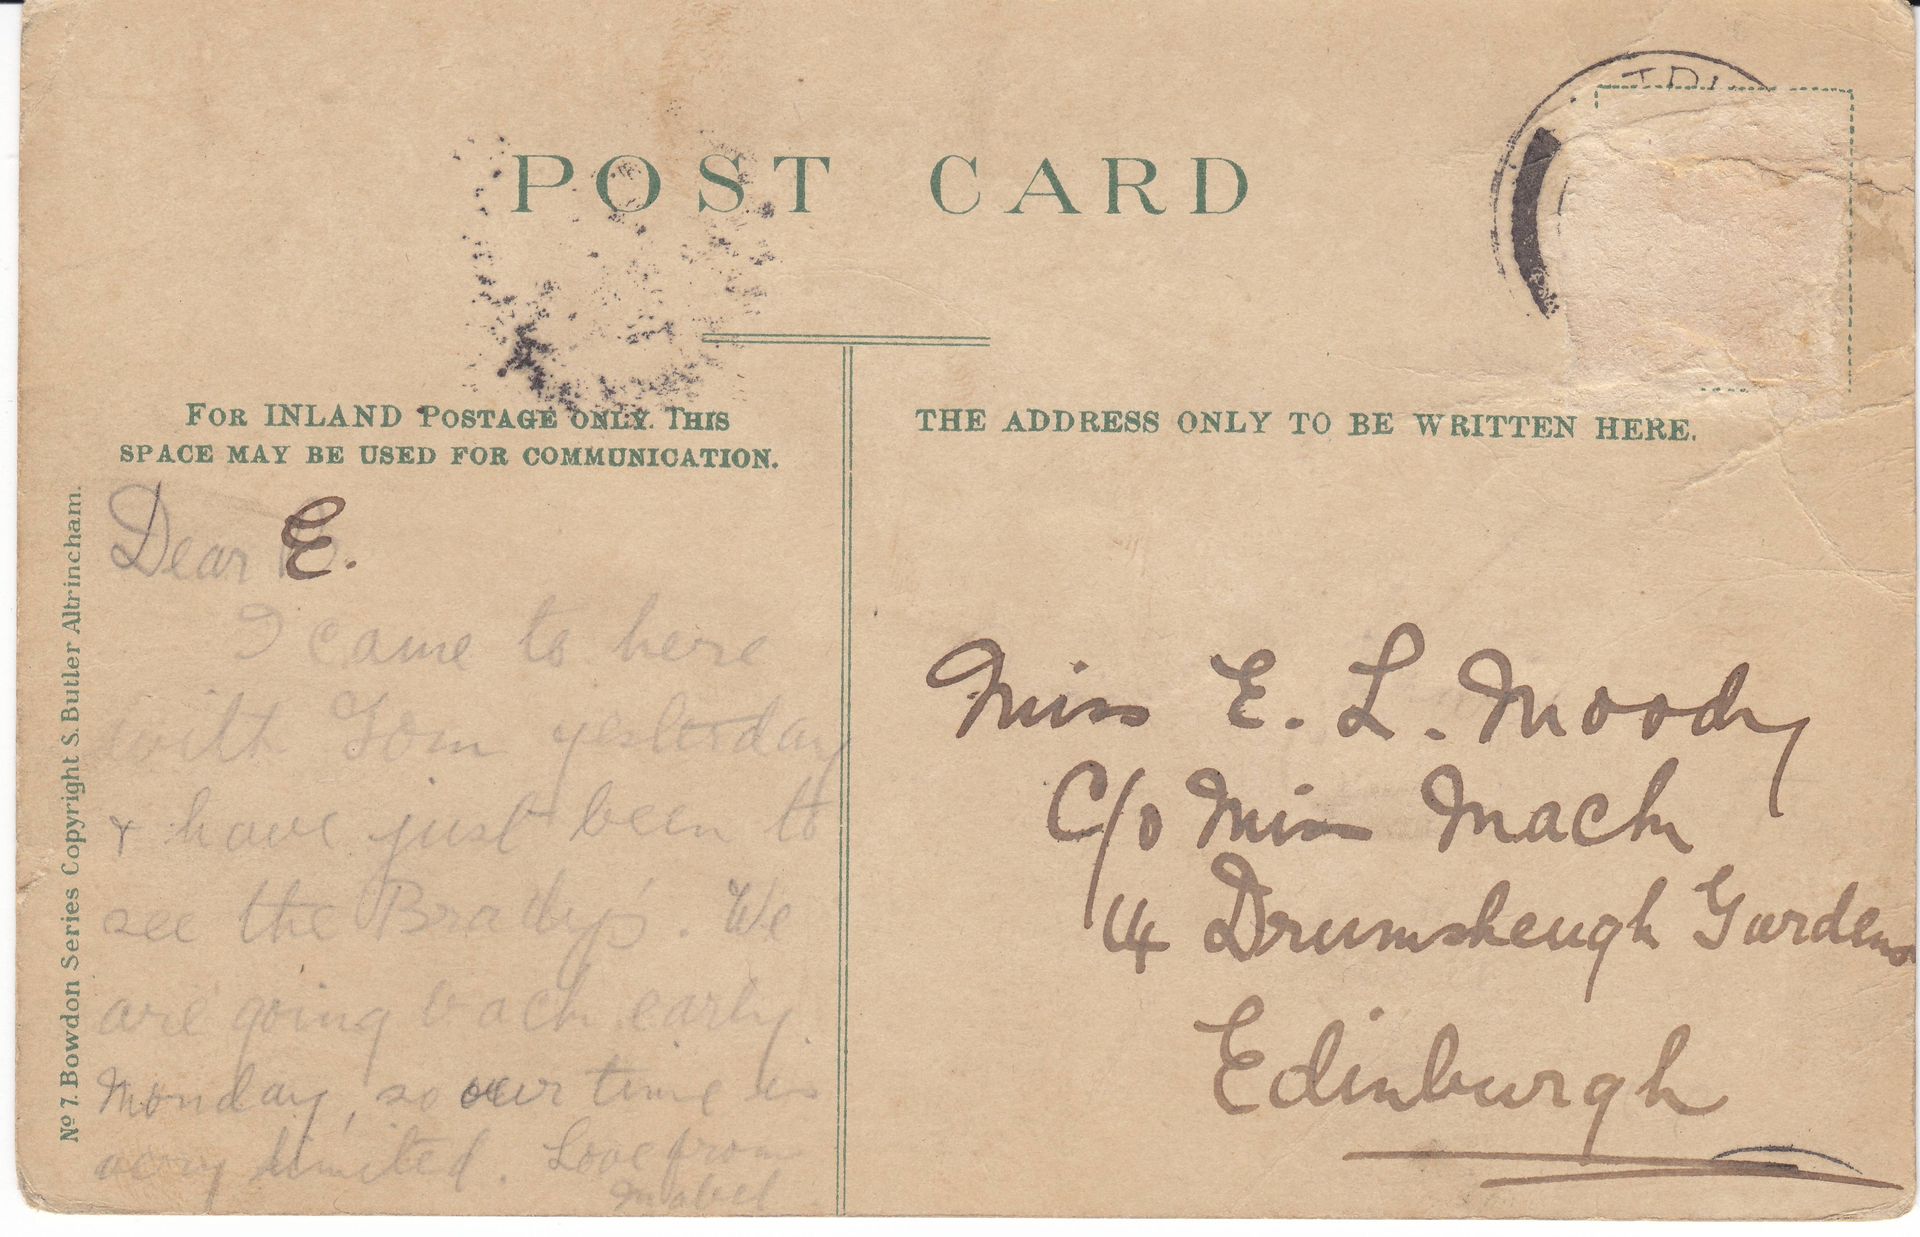 POST CARD
FOR INLAND POSTAGE ONLY. THIS
SPACE MAY BE USED FOR COMMUNICATION.
THE ADDRESS ONLY TO BE WRITTEN HERE.
Dear E.
I came to here
with Tom yesterday
& have just been to
see the Brady's. We
are going back early
Monday, so our time is
very limited. Love from
Mabel
Miss E. L. Moody
C/o Miss Mack
14 Drumsheugh Gardens
Edinburgh
No 7. Bowdon Series Copyright S. Butler Altrincham.